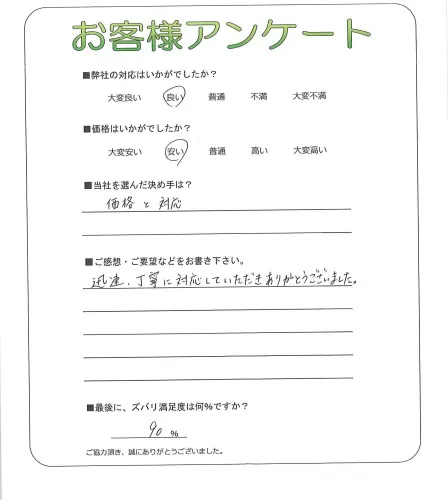 お客様アンケート
■弊社の対応はいかがでしたか？
大変良い 良い 普通 不満 大変不満
■価格はいかがでしたか？
大変安い 安い 普通 高い 大変高い
■当社を選んだ決め手は？
価格と対応
■ご感想・ご要望などをお書き下さい。
迅速、丁寧に対応していただきありがとうございました。
■最後に、ズバリ満足度は何％ですか？
90 ％
ご協力頂き、誠にありがとうございました。